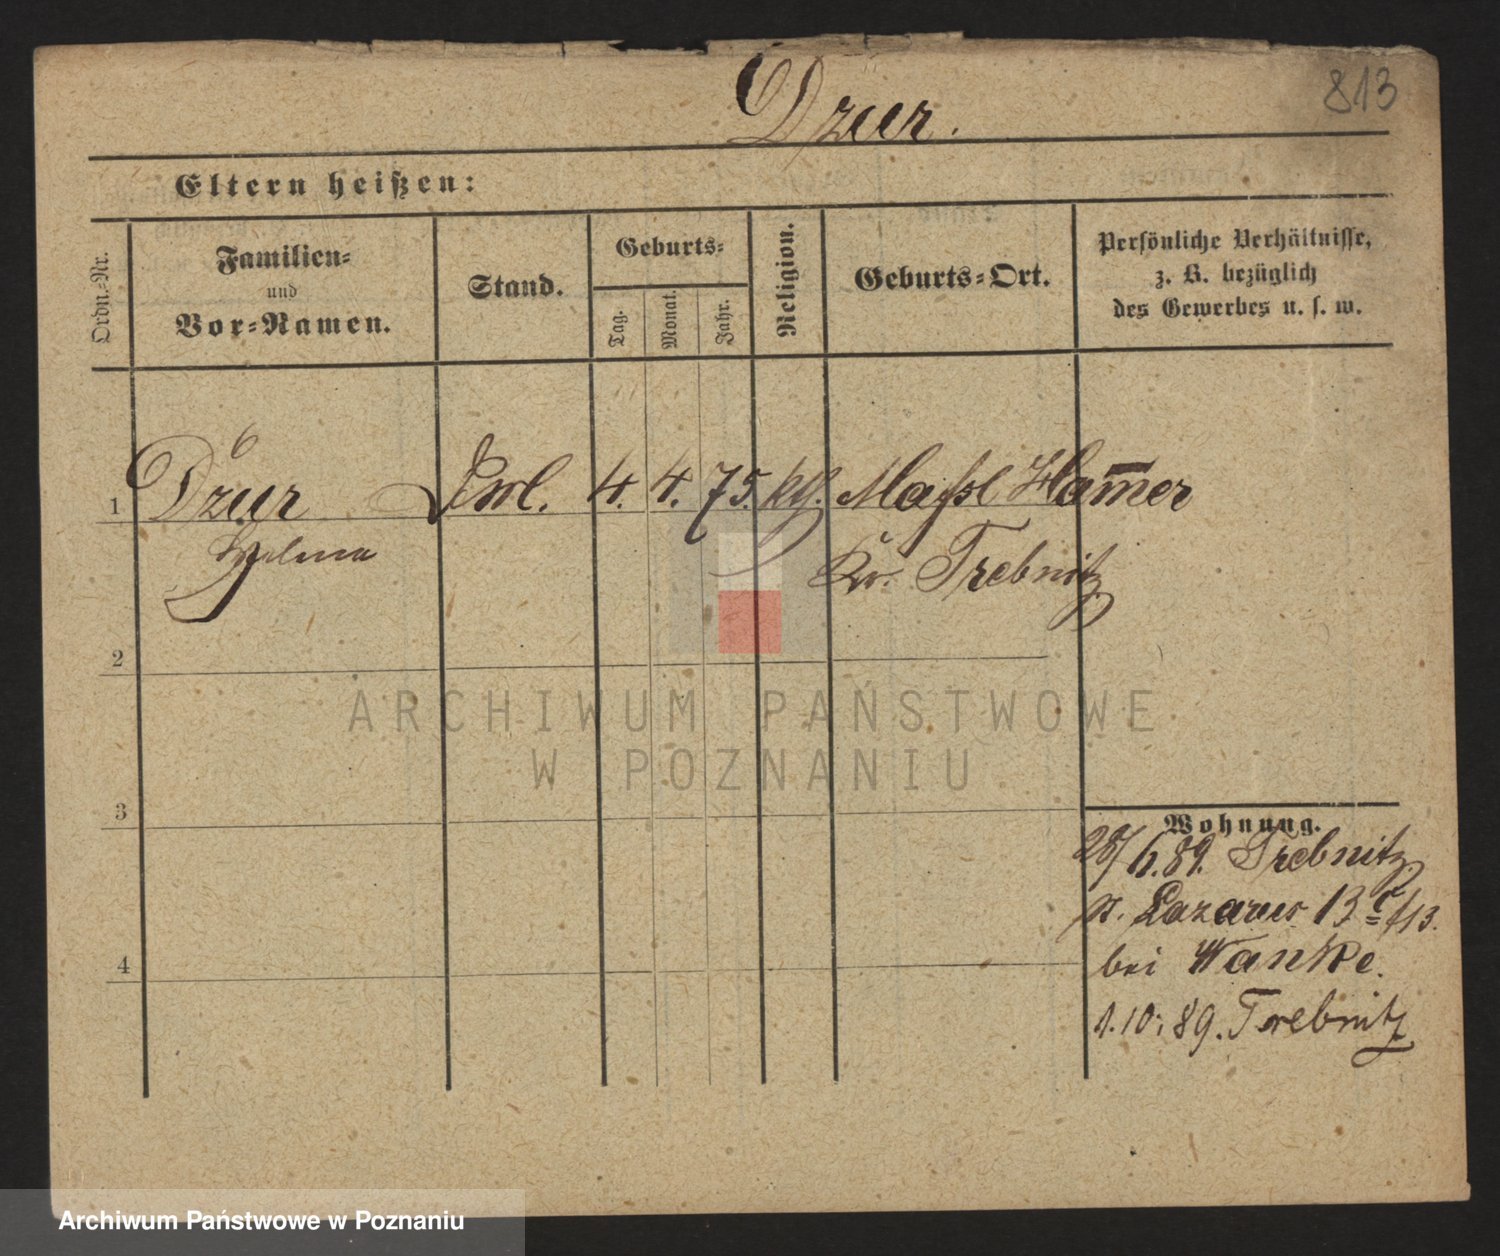 813
Dzur.
Eltern heißen:
Ordn.-Nr.
Familien-
und
Vor-Namen.
Stand.
Geburts-
Tag.
Monat.
Jahr.
Religion.
Geburts-Ort.
Persönliche Verhältnisse,
z. B. bezüglich
des Gewerbes u. s. w.
1 Dzur 4. 4. 75. kth. Ham̅er
Kr. Trebnitz
2
3
4
Wohnung.
28/6.89. Trebnitz
St. Lazarus 13
bei Wanke.
1.10.89. Trebnitz
ARCHIWUM PAŃSTWOWE
W POZNANIU
Archiwum Państwowe w Poznaniu